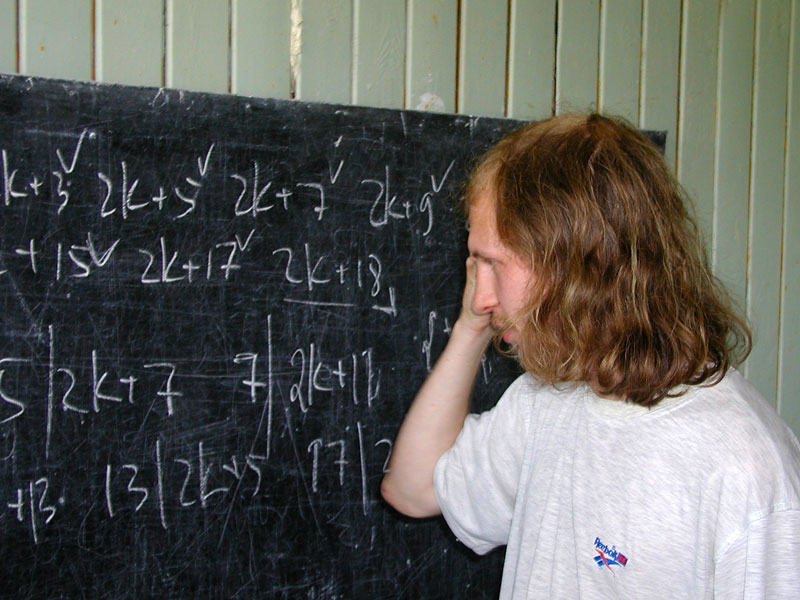 k+3 2k+5 2k+7 2k+9
+15 2k+17 2k+18
5 | 2k+7 7 | 2k+11
+13 13 | 2k+5 17 | 2
Reebok